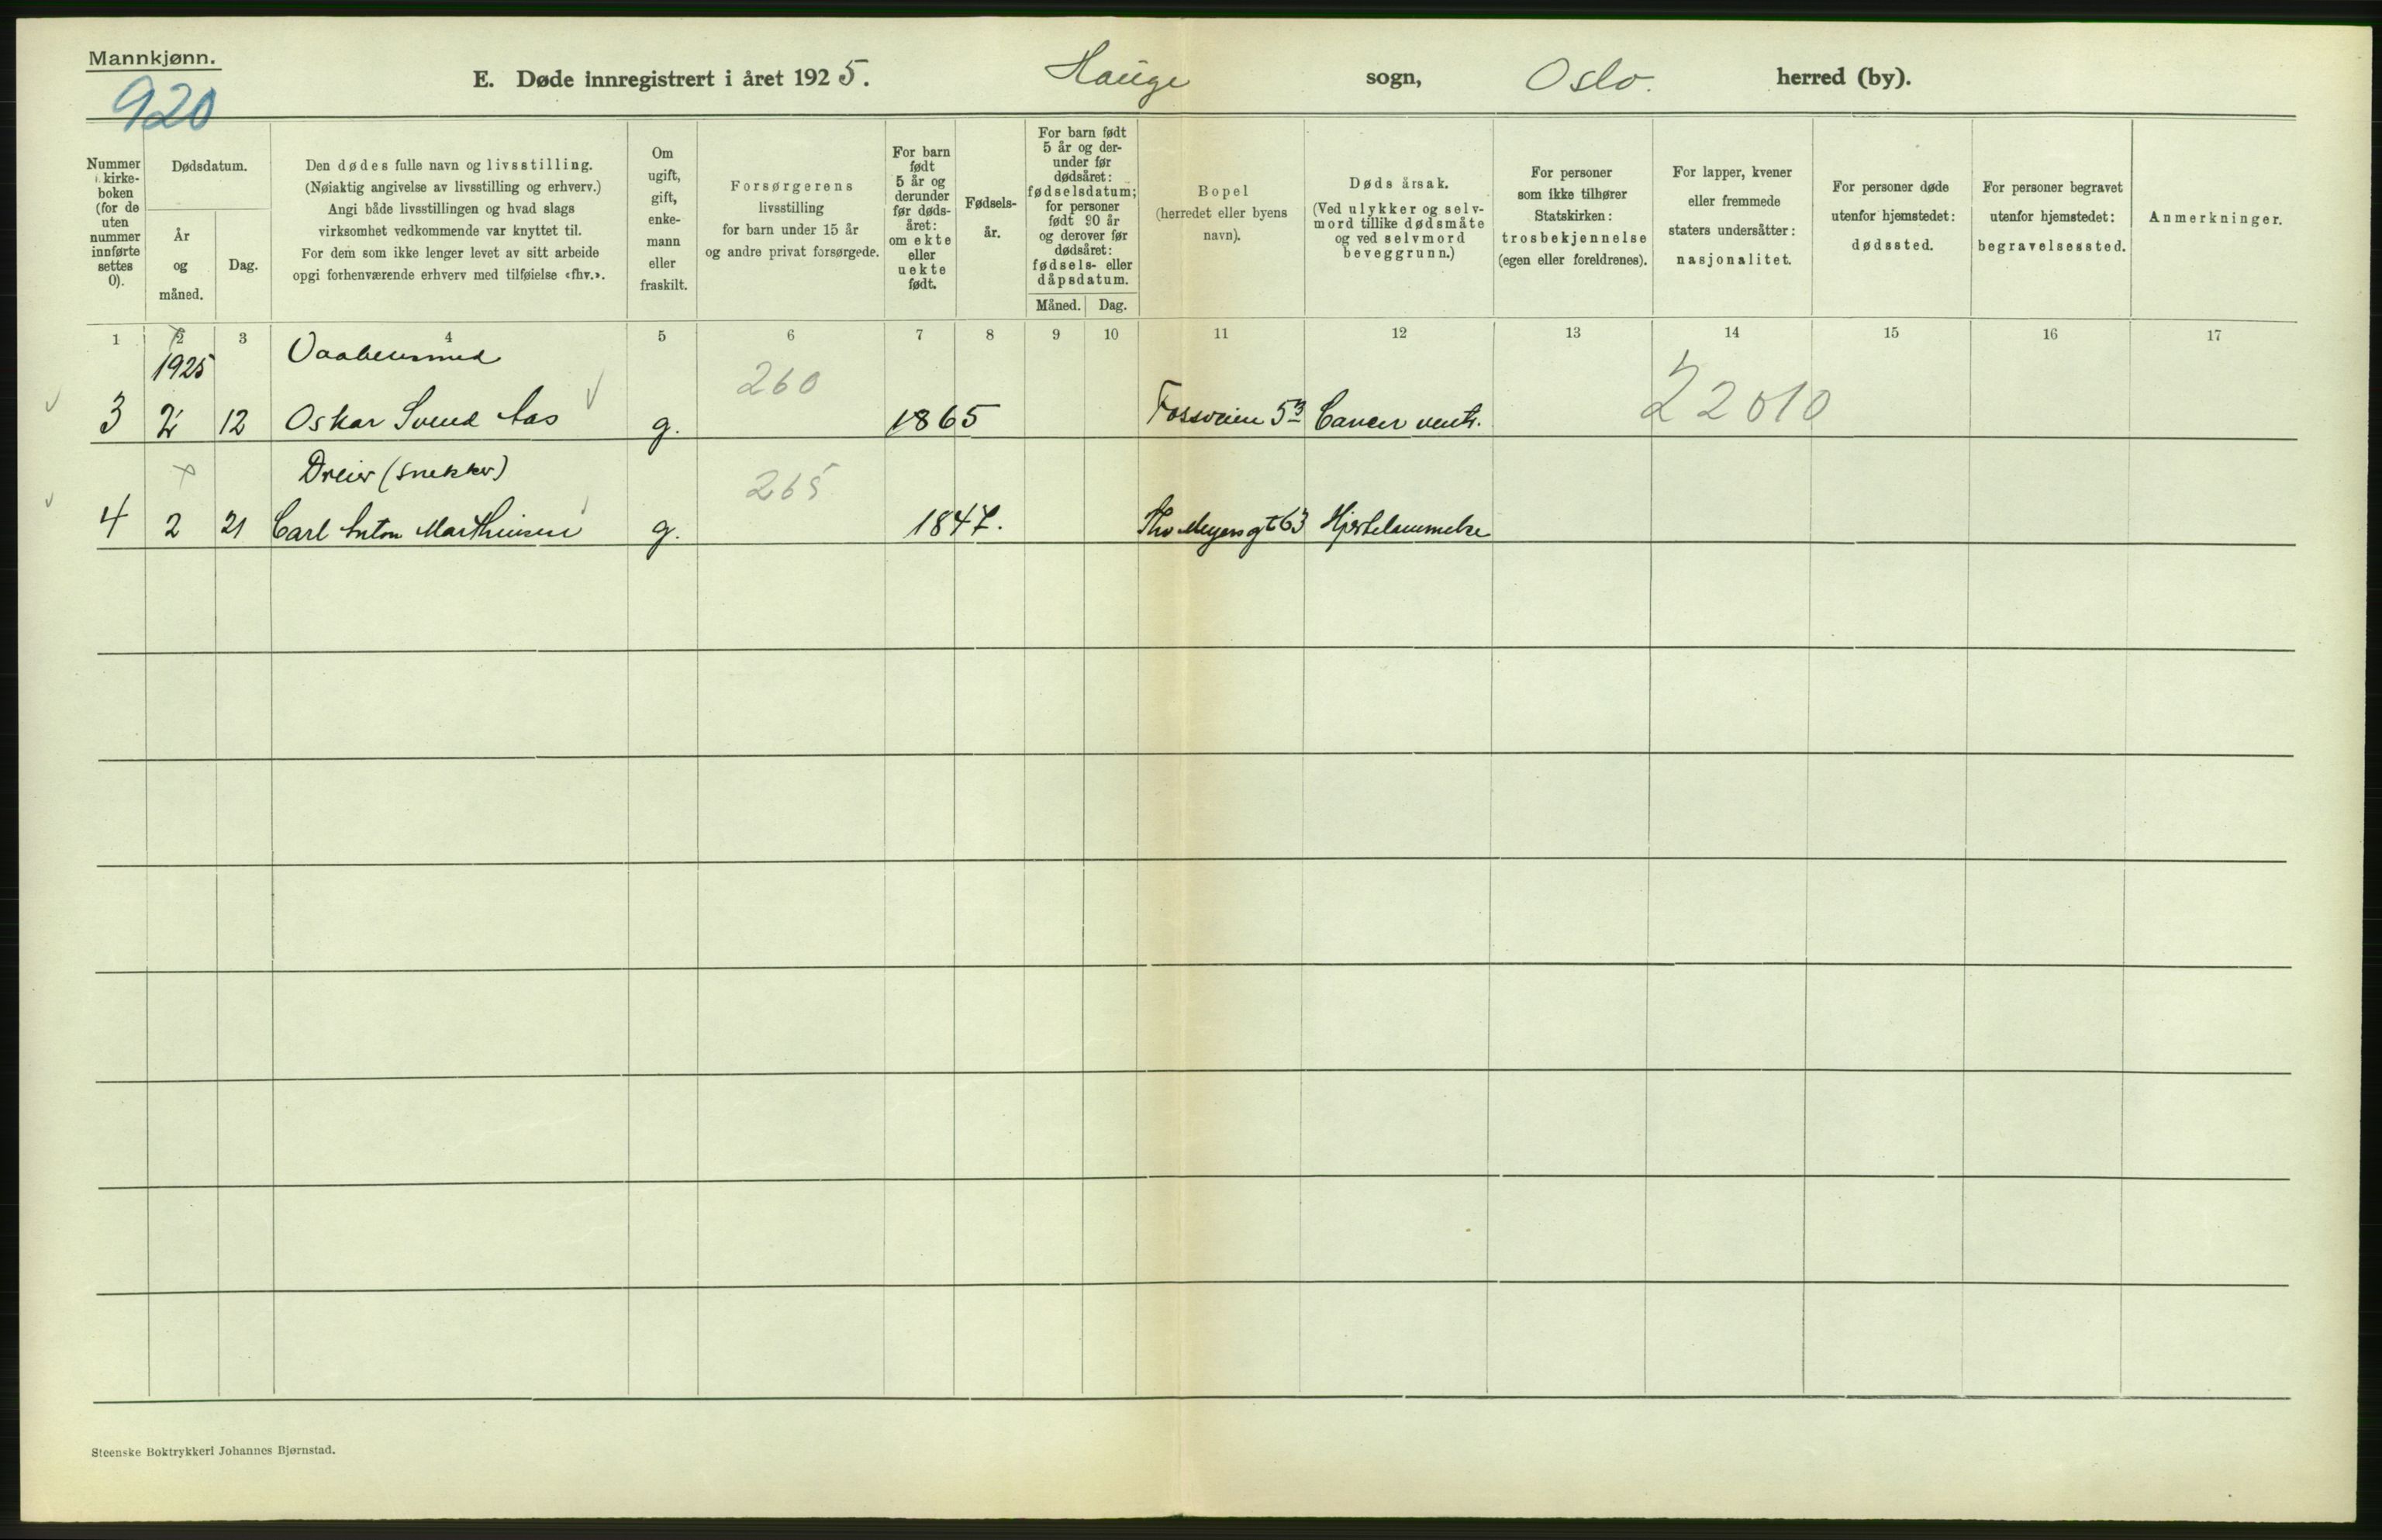 Mannkjønn.
920
E. Døde innregistrert i året 1925. Hauge sogn, Oslo. herred (by).
Nummer
i kirke-
boken
(for de
uten
nummer
innførte
settes
0).
Dødsdatum.
År
og
måned.
Dag.
Den dødes fulle navn og livsstilling.
(Nøiaktig angivelse av livsstilling og erhverv.)
Angi både livsstillingen og hvad slags
virksomhet vedkommende var knyttet til.
For dem som ikke lenger levet av sitt arbeide
opgi forhenværende erhverv med tilføielse «fhv.».
Om
ugift,
gift,
enke-
mann
eller
fraskilt.
Forsørgerens
livsstilling
for barn under 15 år
og andre privat forsørgede.
For barn
født
5 år og
derunder
før døds-
året:
om ekte
eller
uekte
født.
Fødsels-
år.
For barn født
5 år og der-
under før
dødsåret:
fødselsdatum;
for personer
født 90 år
og derover før
dødsåret:
fødsels- eller
dåpsdatum.
Måned. Dag.
Bopel
(herredet eller byens
navn).
Dødsårsak.
(Ved ulykker og selv-
mord tillike dødsmåte
og ved selvmord
beveggrunn.)
For personer
som ikke tilhører
Statskirken:
trosbekjennelse
(egen eller foreldrenes).
For lapper, kvener
eller fremmede
staters undersåtter:
nasjonalitet.
For personer døde
utenfor hjemstedet:
dødssted.
For personer begravet
utenfor hjemstedet:
begravelsessted.
Anmerkninger.
1 2 3 4 5 6 7 8 9 10 11 12 13 14 15 16 17
1925 Vaabensmed 260
3 2 12 Oskar Svend Aas g. 1865 Fossveien 5 Cancer ventr. 22010
Dreier (snekker) 265
4 2 21 Carl Anton Marthinsen g. 1847. Thv Meyersgt 63 Hjertelammelse
Steenske Boktrykkeri Johannes Bjørnstad.